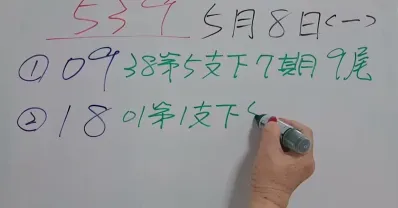 539 5月8日(一)
① 09 38第5支下7期9尾
② 18 01第1支下